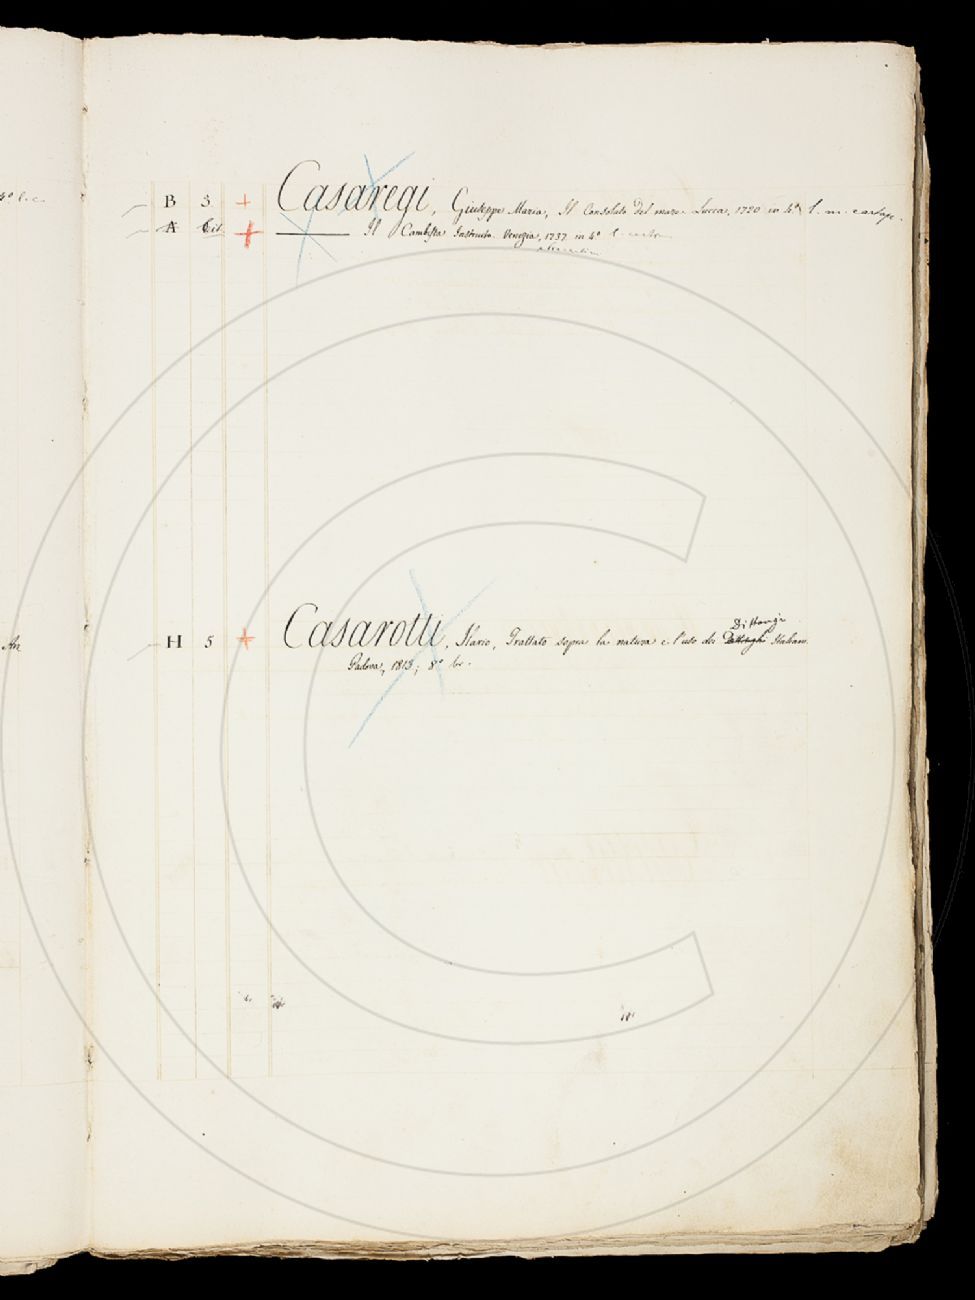 4º l.c.
B 3 + Casaregi, Giuseppe Maria, Il Consolato del mare. Lucca, 1720 in 4º l. m. cartap.
A + ——— Il Cambista Instruito. Venezia, 1737 in 4º
An
Dittongi
H 5 + Casarotti, Ilario, Trattato sopra la natura e l'uso dei Dittonghi Italiani
Padova, 1813; 8º br.